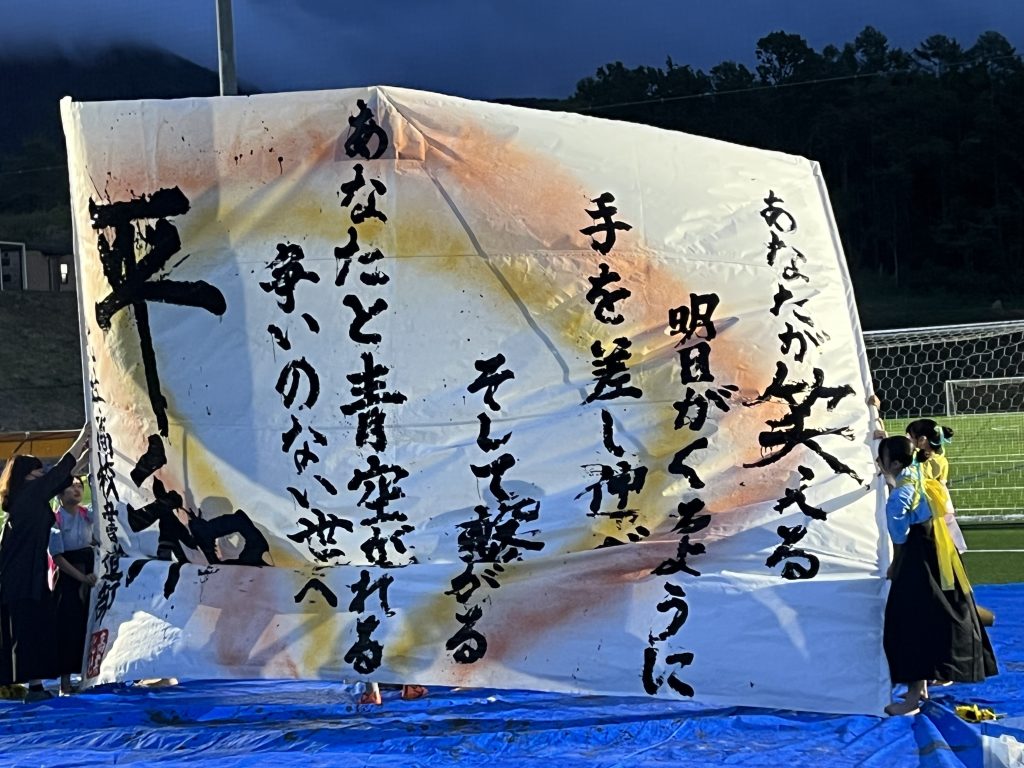 あなたが笑える
明日がくるように
手を差し伸べ
そして繋がる
あなたと青空がれる
争いのない世へ
平和
高校書道部